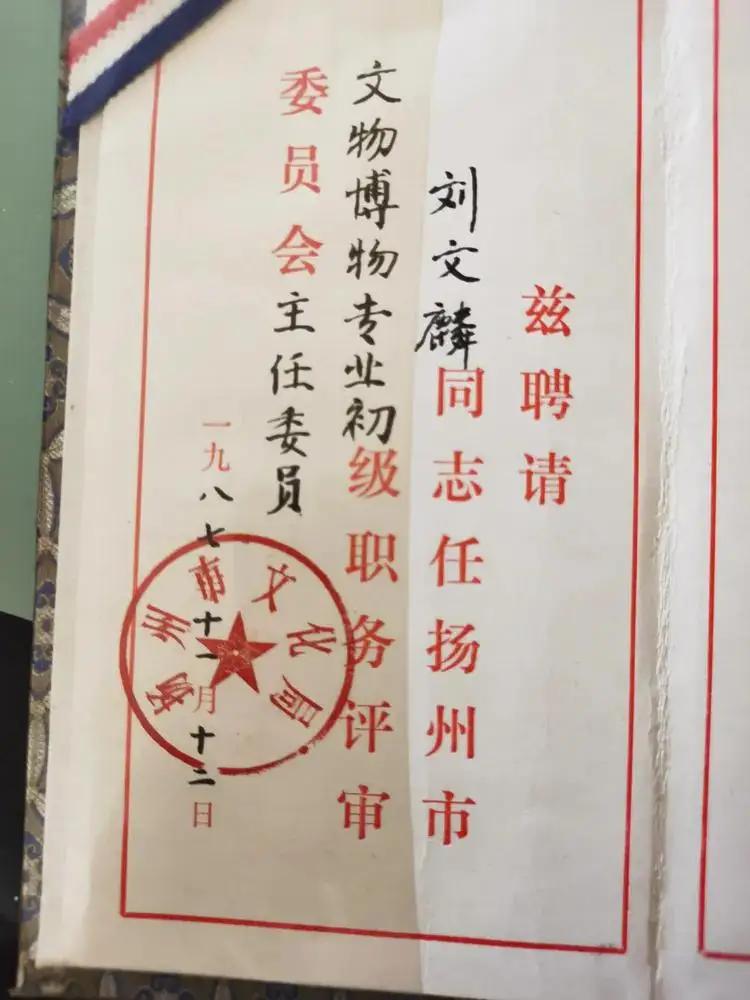 兹聘请
刘文麟同志任扬州市
文物博物专业初级职务评审
委员会主任委员
一九八七年十一月十三日
扬州市文化局